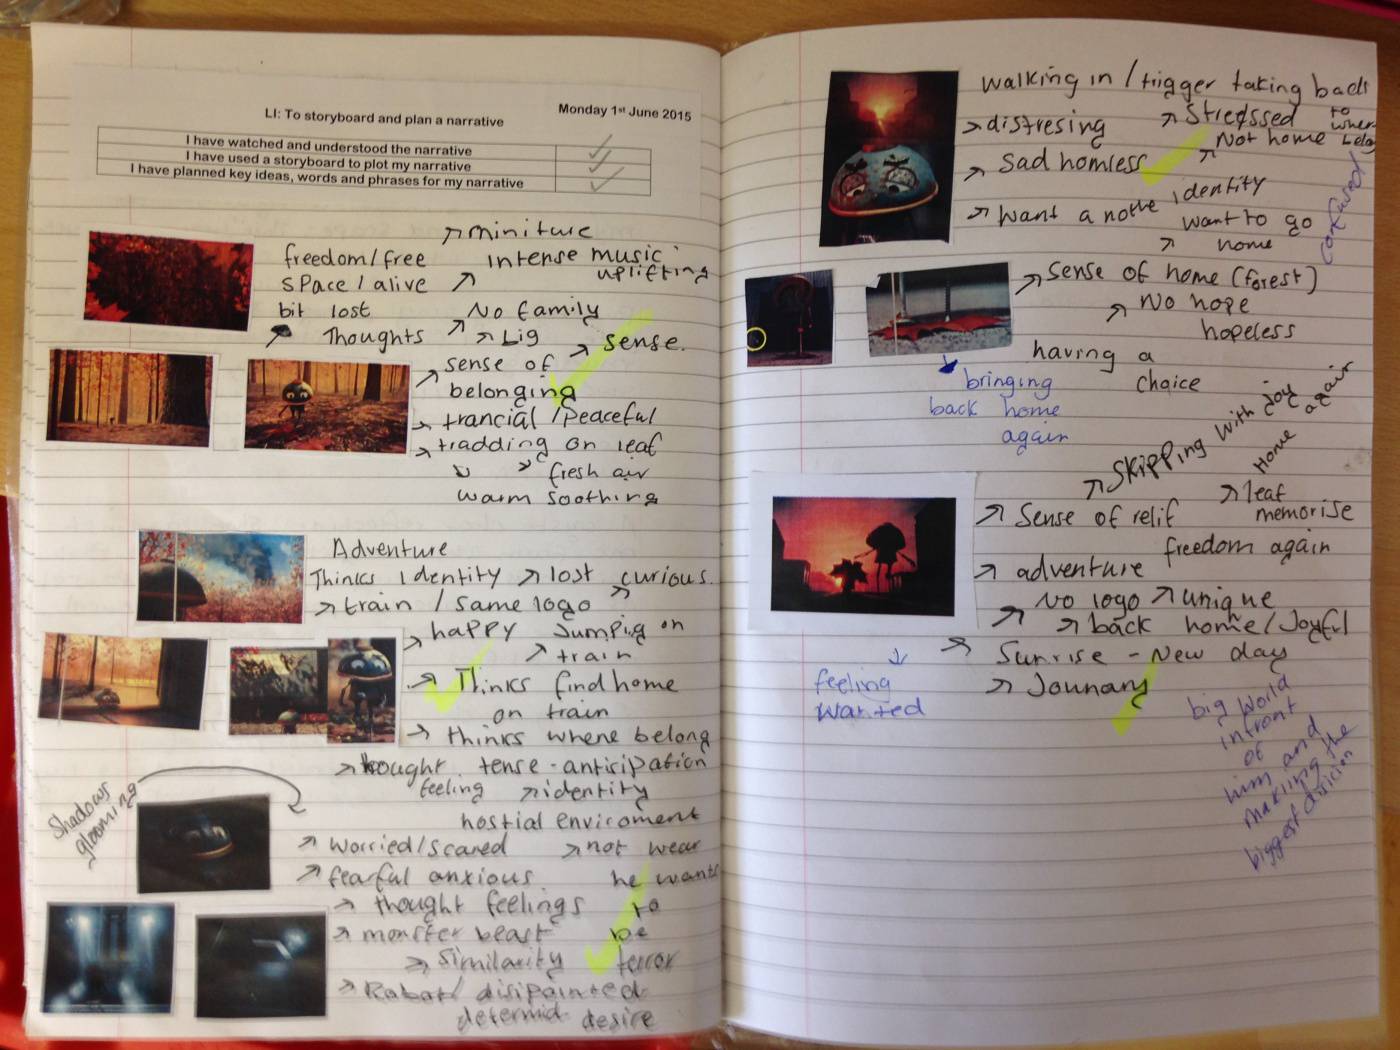 LI: To storyboard and plan a narrative
Monday 1st June 2015
I have watched and understood the narrative
I have used a storyboard to plot my narrative
I have planned key ideas, words and phrases for my narrative
miniture
freedom/free
intense music
uplifting
space/alive
bit lost
No family
Thoughts
Lig
sense.
sense of
belonging
trancial/peaceful
tradding on leaf
fresh air
warm soothing
Adventure
Thinks identity
lost
curious.
train / same logo
happy
Jumping on
train
Thinks find home
on train
thinks where belong
thought tense-anticipation
feeling
identity
hostial enviroment
Shadows
glooming
worried/scared
not wear
fearful anxious
he wants
thought feelings
to
monster beast
be
Similarity
terror
Robot/ disipainted
determid desire
walking in / trigger taking back
to
where
belong
distresing
Stressed
Not home
Sad homless
confused
identity
want a nothe
want to go
home
Sense of home (forest)
No hope
hopeless
having a
choice
bringing
back home
again
Skipping with joy
Home again
leaf
memorise
Sense of relif
freedom again
adventure
No logo
unique
back home/Joyful
Sunrise - New day
Jounany
feeling
wanted
big world
infront
of
him and
making the
biggest disicion